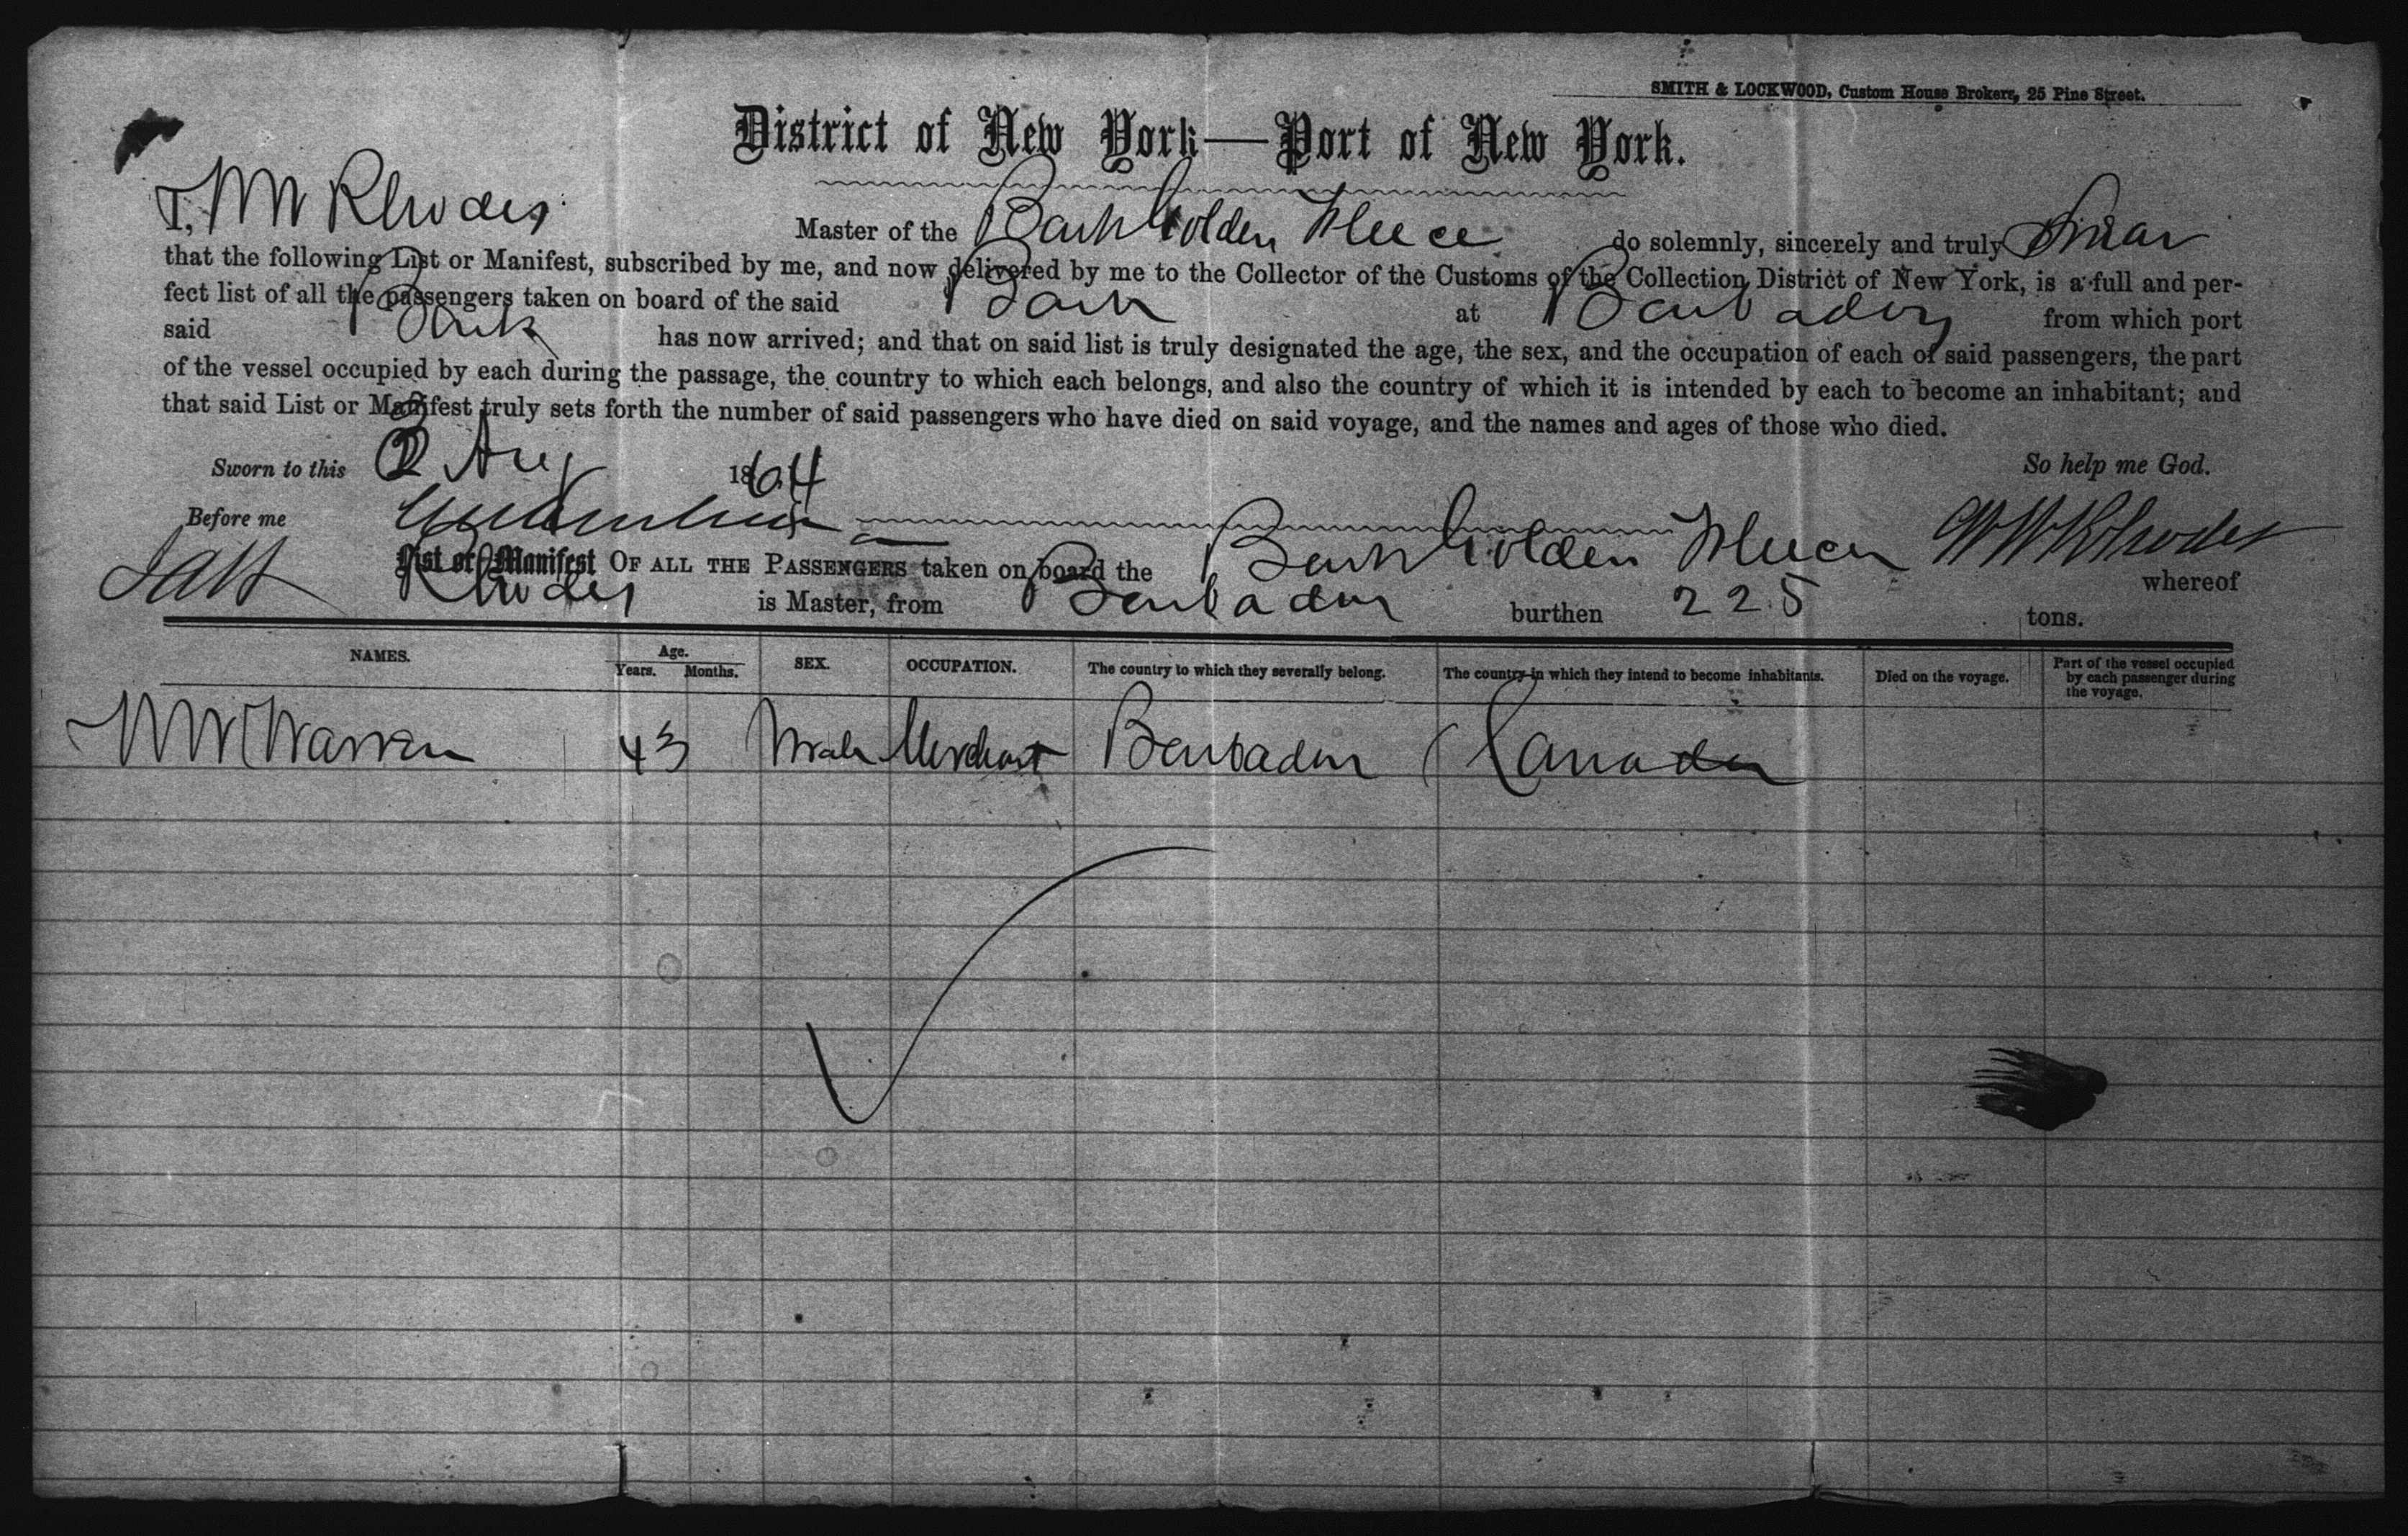 SMITH & LOCKWOOD, Custom House Brokers, 25 Pine Street.
District of New York—Port of New York.
I, W W Rhodes Master of the Bark Golden Fleece do solemnly, sincerely and truly Swear
that the following List or Manifest, subscribed by me, and now delivered by me to the Collector of the Customs of the Collection District of New York, is a full and per-
fect list of all the passengers taken on board of the said Bark at Barbados from which port
said Bark has now arrived; and that on said list is truly designated the age, the sex, and the occupation of each of said passengers, the part
of the vessel occupied by each during the passage, the country to which each belongs, and also the country of which it is intended by each to become an inhabitant; and
that said List or Manifest truly sets forth the number of said passengers who have died on said voyage, and the names and ages of those who died.
Sworn to this 2 Aug 1864 So help me God.
Before me W W Rhodes
List or Manifest OF ALL THE PASSENGERS taken on board the Bark Golden Fleece whereof
Rhodes is Master, from Barbados burthen 225 tons.
NAMES. Age. Years. Months. SEX. OCCUPATION. The country to which they severally belong. The country in which they intend to become inhabitants. Died on the voyage. Part of the vessel occupied by each passenger during the voyage.
W W Warren 43 Male Merchant Barbados Canada